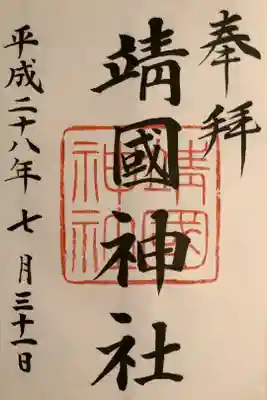 奉拝
靖國神社
靖國
神社
平成二十八年 七月三十一日